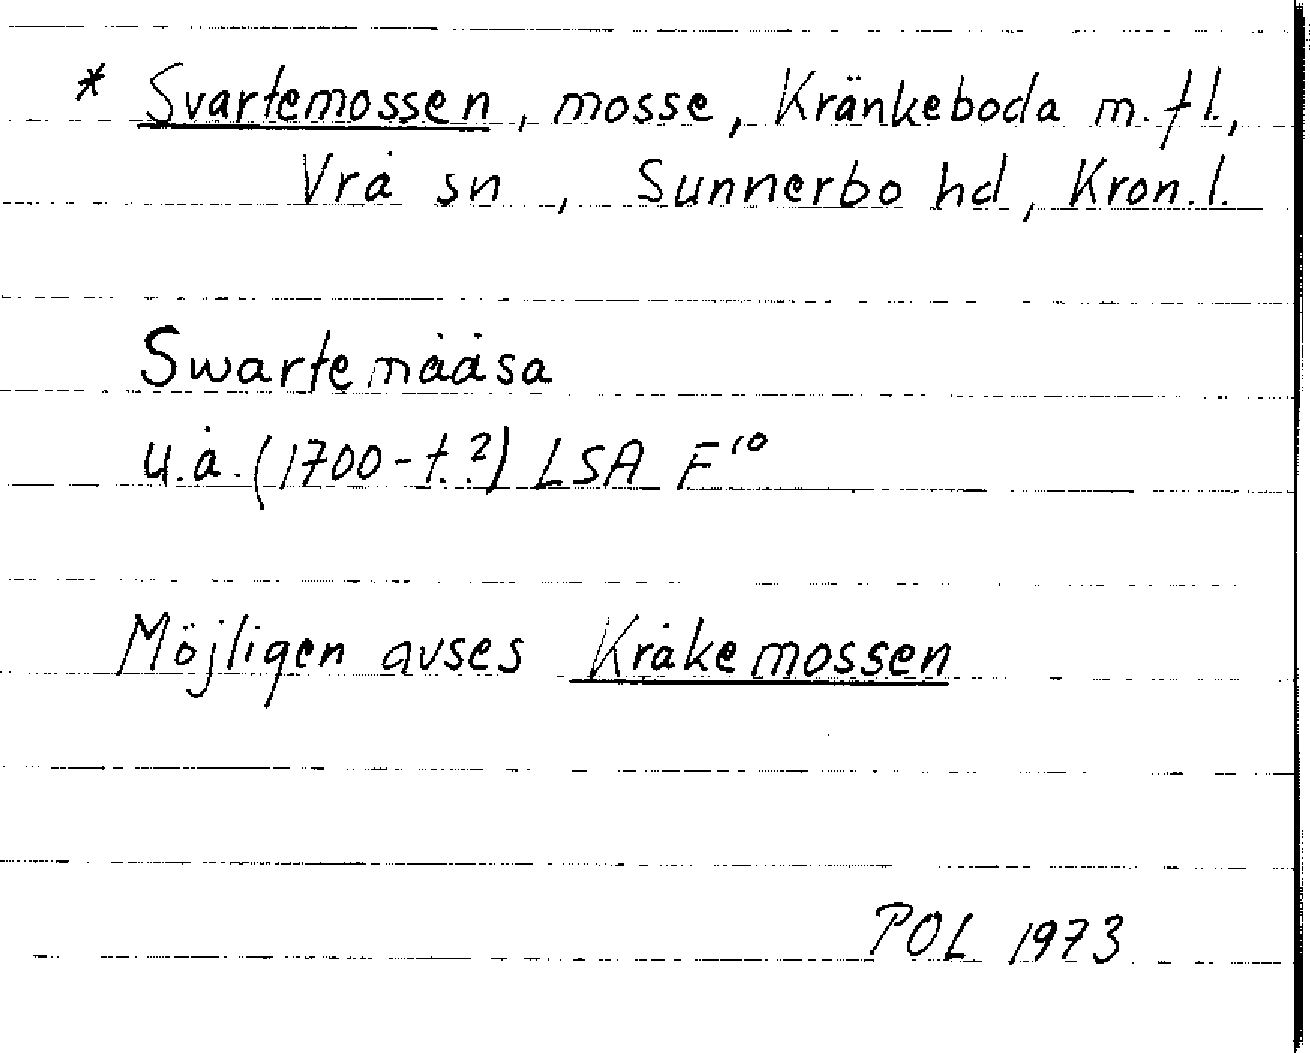 * Svartemossen, mosse, Kränkeboda m.fl.,
Vrå sn, Sunnerbo hd, Kron.l.
Swartemååsa
u.å. (1700-t.?) LSA F¹⁰
Möjligen avses Kråkemossen
POL 1973